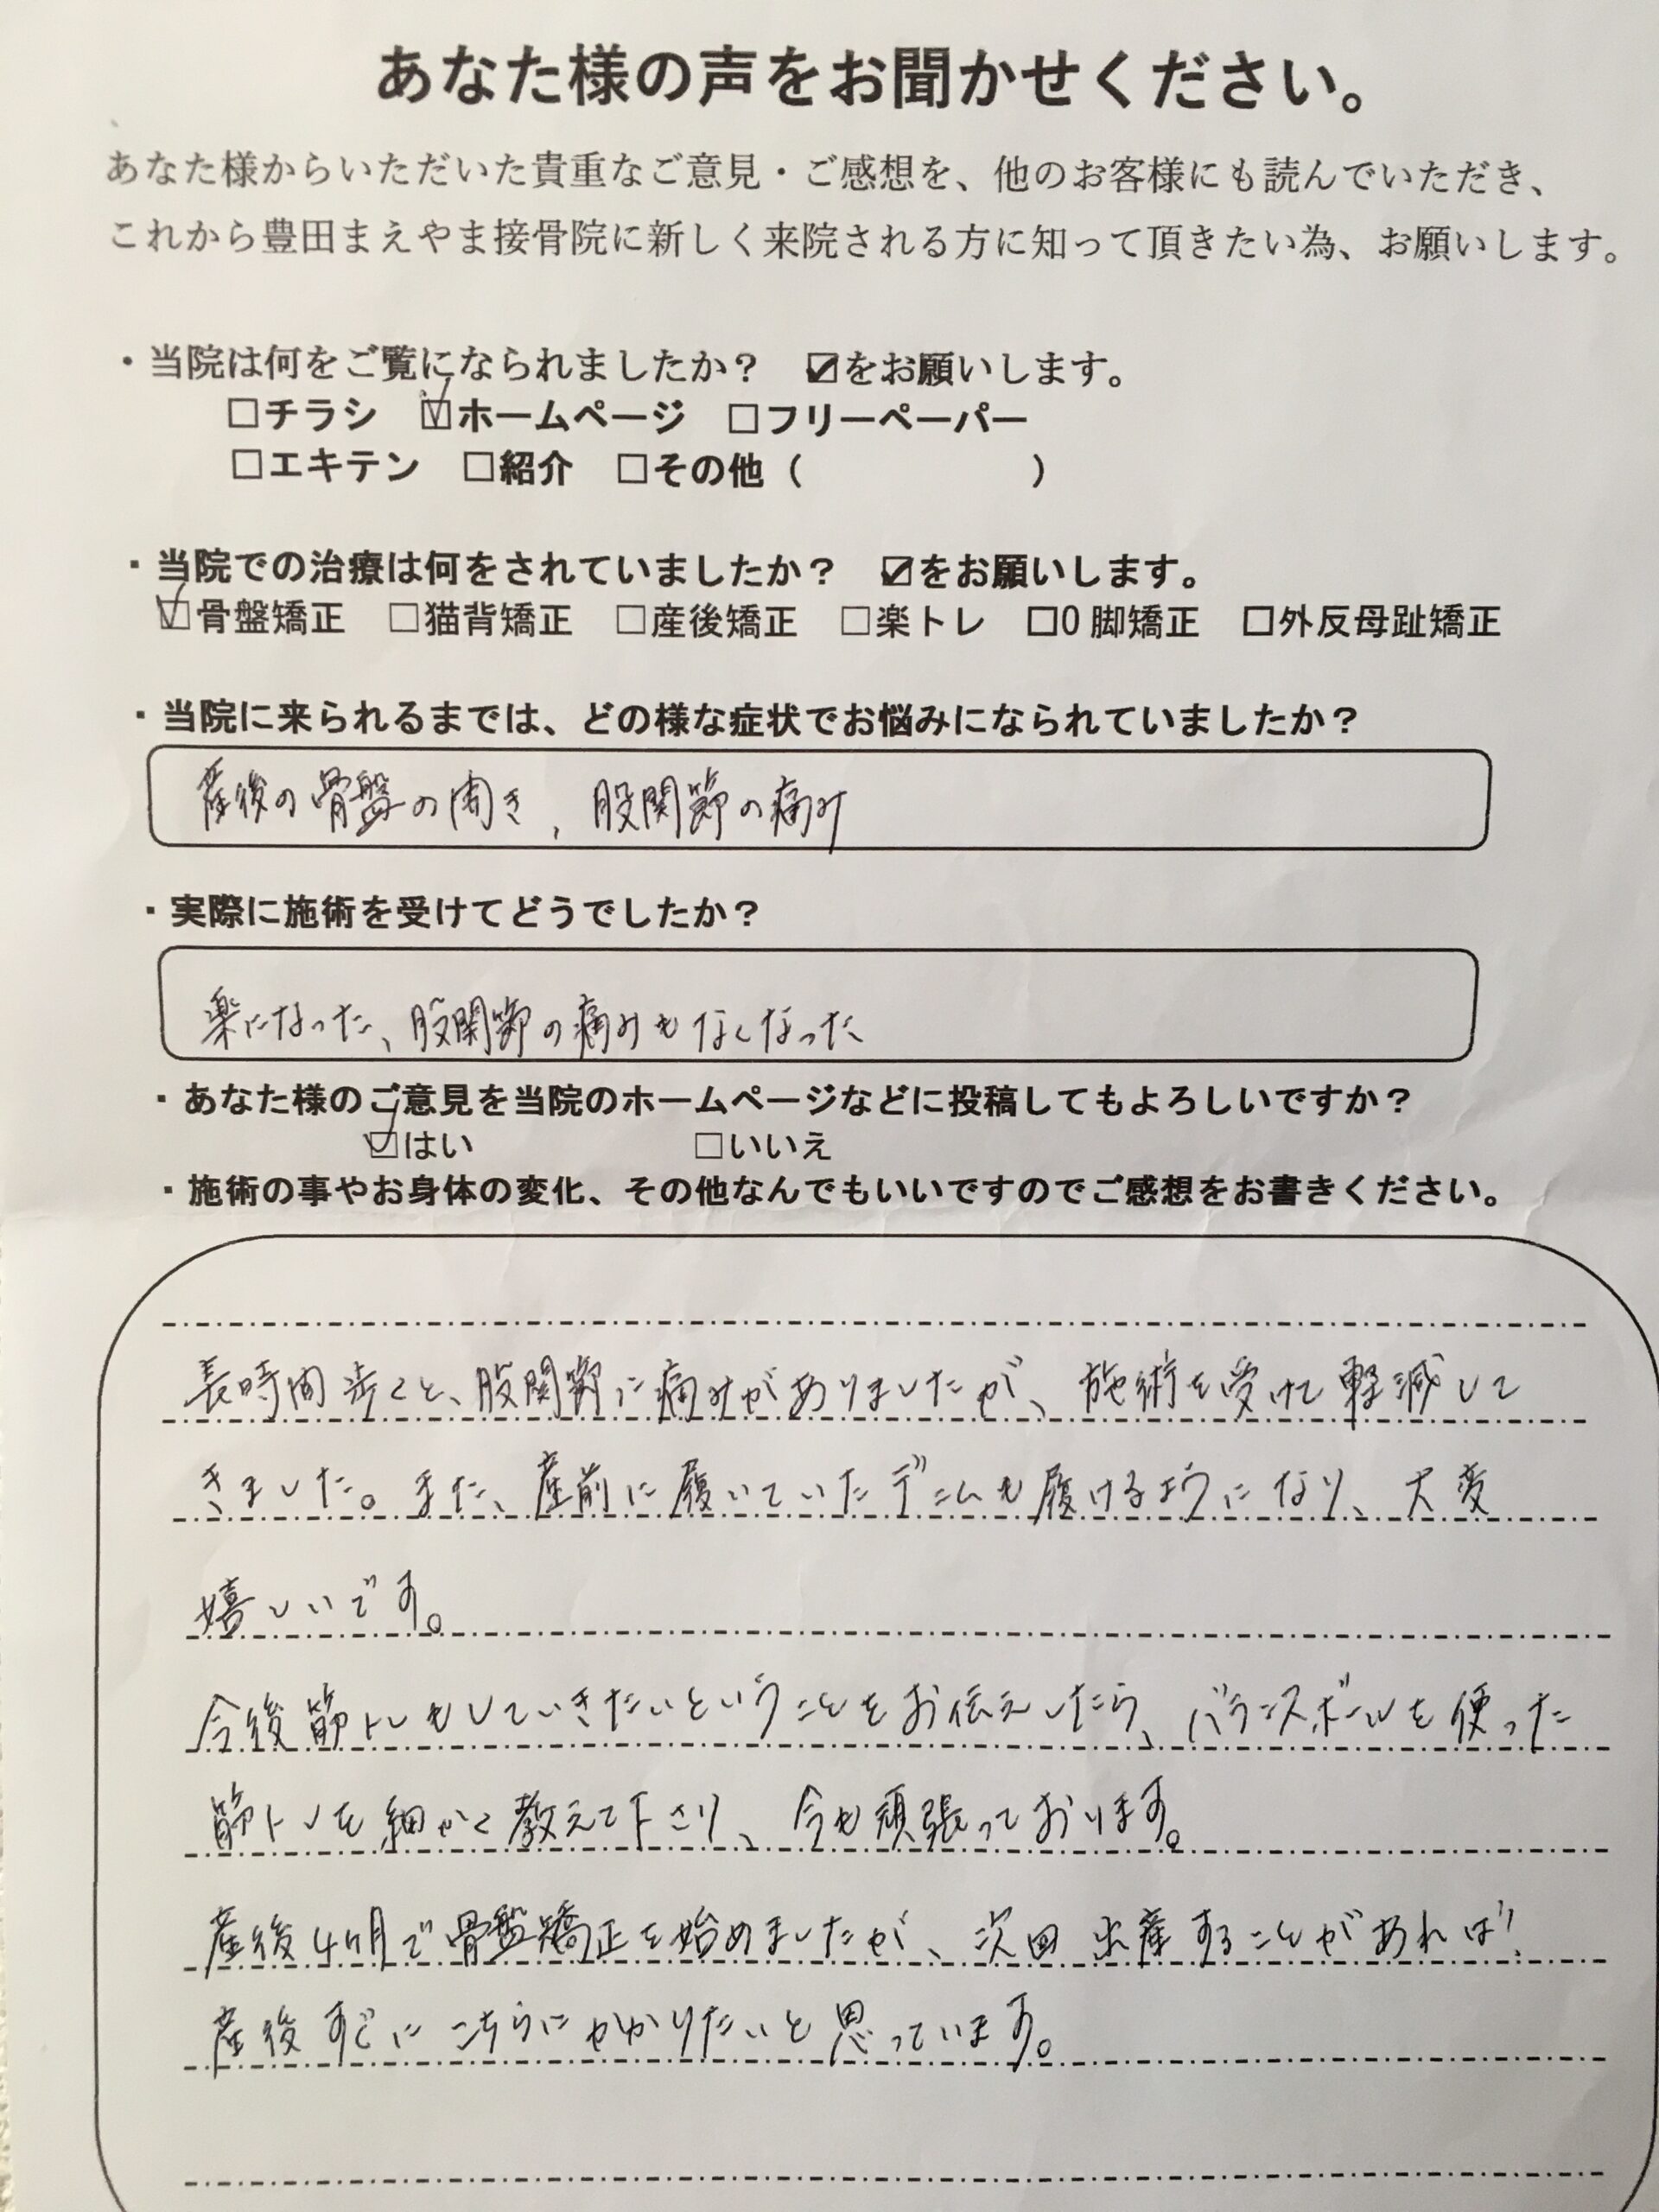 あなた様の声をお聞かせください。
あなた様からいただいた貴重なご意見・ご感想を、他のお客様にも読んでいただき、
これから豊田まえやま接骨院に新しく来院される方に知って頂きたい為、お願いします。
・当院は何をご覧になられましたか？ ☑をお願いします。
□チラシ ☑ホームページ □フリーペーパー
□エキテン □紹介 □その他（ ）
・当院での治療は何をされていましたか？ ☑をお願いします。
☑骨盤矯正 □猫背矯正 □産後矯正 □楽トレ □O脚矯正 □外反母趾矯正
・当院に来られるまでは、どの様な症状でお悩みになられていましたか？
産後の骨盤の開き、股関節の痛み
・実際に施術を受けてどうでしたか？
楽になった、股関節の痛みもなくなった
・あなた様のご意見を当院のホームページなどに投稿してもよろしいですか？
☑はい □いいえ
・施術の事やお身体の変化、その他なんでもいいですのでご感想をお書きください。
長時間歩くと、股関節に痛みがありましたが、施術を受けて軽減して
きました。また、産前に履いていたデニムも履けるようになり、大変
嬉しいです。
今後筋トレもしていきたいということをお伝えしたら、バランスボールを使った
筋トレを細かく教えて下さり、今も頑張っております。
産後4ヶ月で骨盤矯正を始めましたが、次回出産することがあれば！
産後すぐにこちらにかかりたいと思っています。